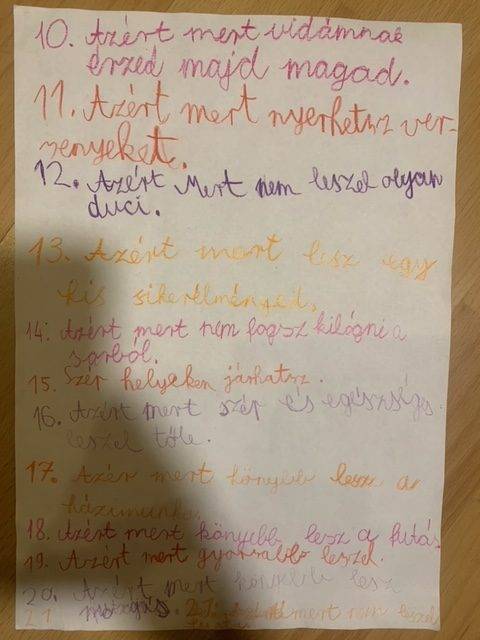 10. Azért mert vidámnak
érzed majd magad.
11. Azért mert nyerhetsz ver-
senyeket.
12. Azért Mert nem leszel olyan
duci.
13. Azért mert lesz egy
kis sikerélményed.
14. Azért mert nem fogsz kilógni a
sorból.
15. Szép helyeken járhatsz.
16. Azért mert szép és egészséges
leszel tőle.
17. Azér mert könyebb lesz a
házimunka.
18. Azért mert könyebb lesz a futás.
19. Azért mert gyorsabb leszel.
20. Azért mert könyebb lesz
mozgás. 21. mert nem leszel
21